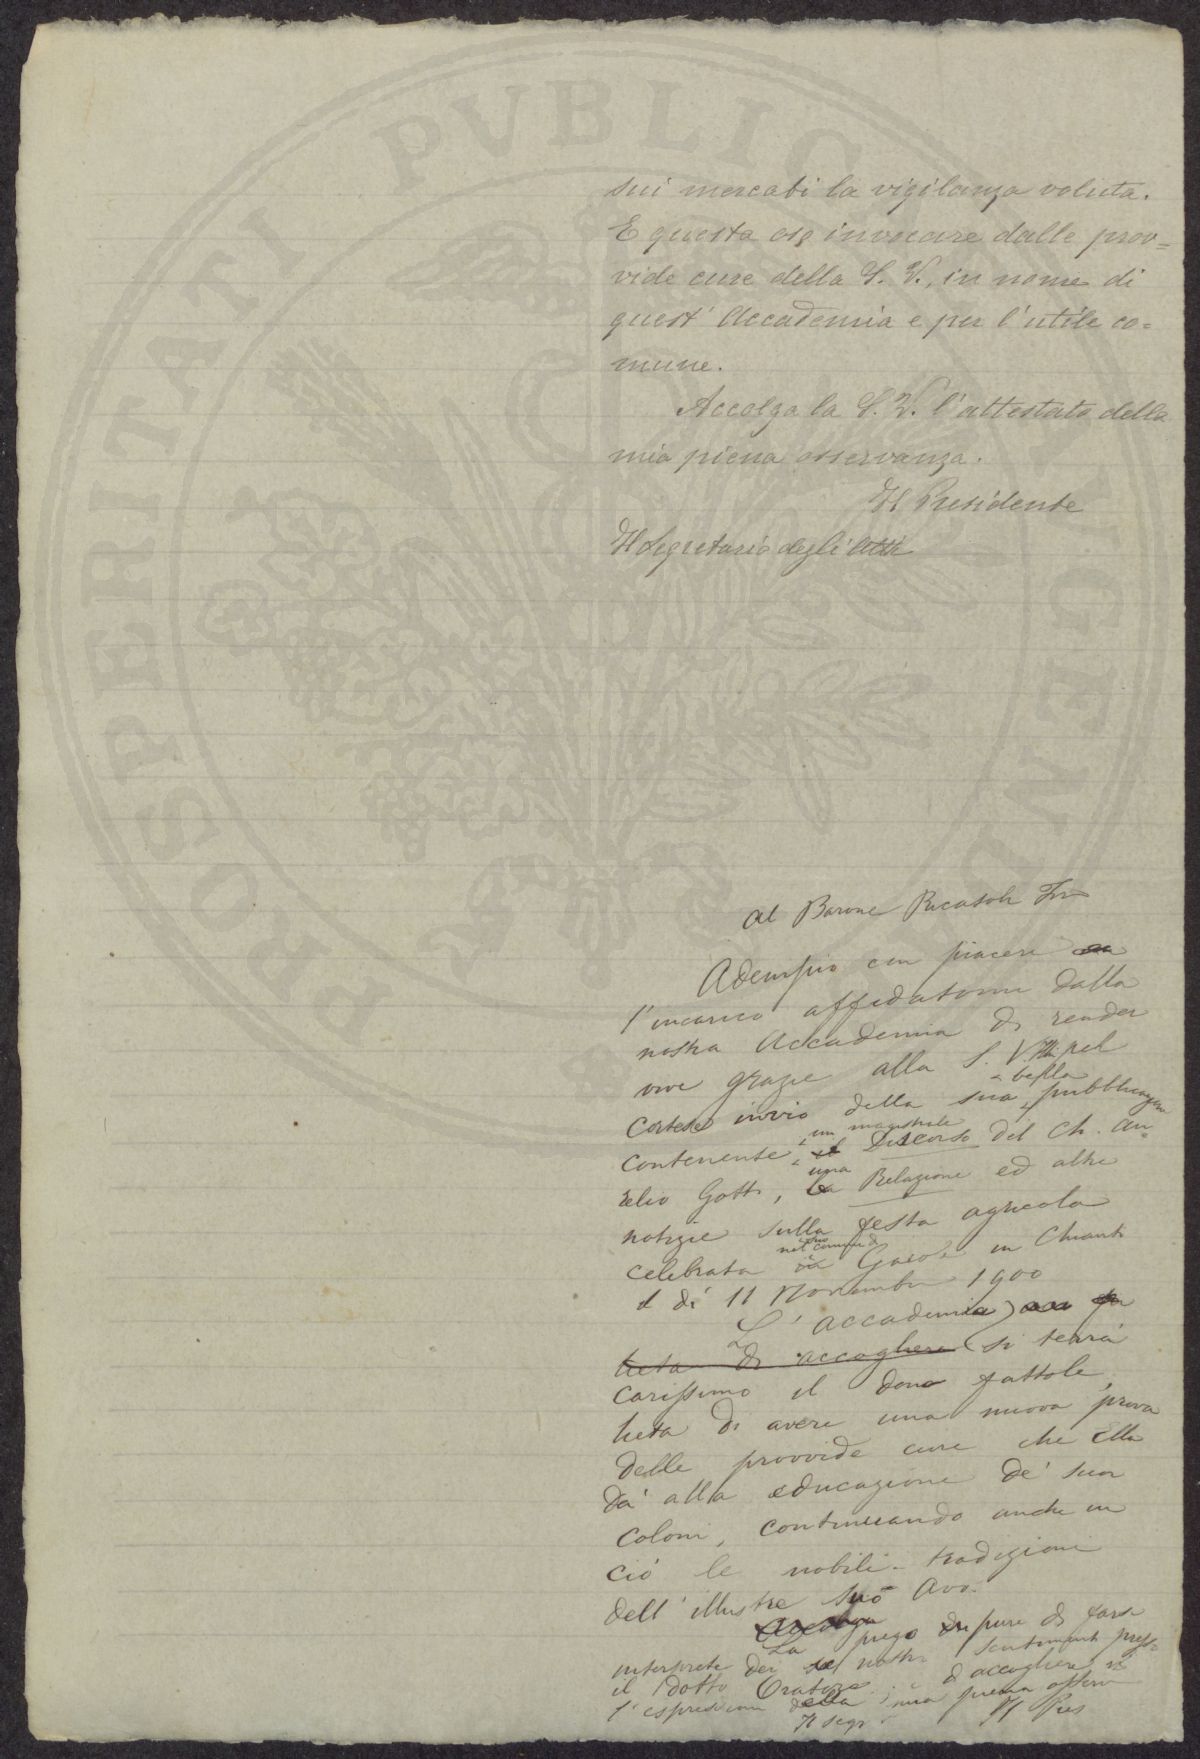 PROSPERITATI PVBLICAE AVGENDAE
sui mercati la vigilanza voluta.
E questa oso invocare dalle prov=
vide cure della S. V., in nome di
quest' Accademia e per l'utile co=
mune.
Accolga la S. V. l'attestato della
mia piena osservanza.
Il Presidente
Il Segretario degli Atti
Al Barone Ricasoli
Adempio con piacere
l'incarico affidatomi dalla
nostra Accademia di render
vive grazie alla S. V. Ill. pel
cortese invio della sua bella pubblicazione
contenente un magistrale Discorso del Ch. Au=
relio Gotti, una Relazione ed altre
notizie sulla festa agricola
celebrata nel comune di Gaiole in Chianti
il dì 11 Novembre 1900
L'Accademia
lieta di accogliere si terrà
carissimo il dono fattole,
lieta di avere una nuova prova
delle provvide cure che Ella
dà alla educazione de' suoi
coloni, continuando anche in
ciò le nobili tradizioni
dell'illustre suo Avo.
Accolga
La prego pure di farsi
interprete dei nostri sentimenti presso
il dotto Oratore; d'accogliere
l'espressione della mia piena osserv
Il segr. Il Pres